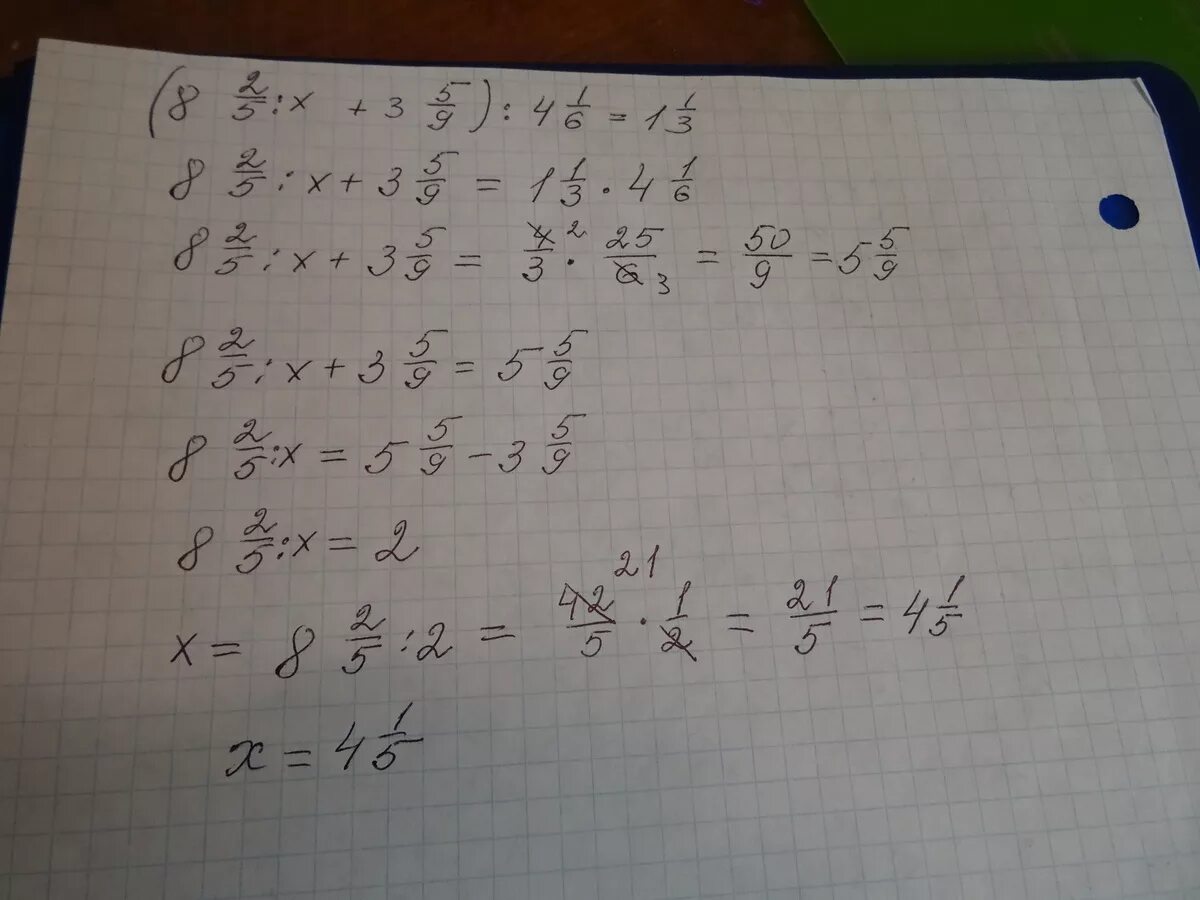 (8 2/5 : x + 3 5/9) : 4 1/6 = 1 1/3
8 2/5 : x + 3 5/9 = 1 1/3 · 4 1/6
8 2/5 : x + 3 5/9 = 4/3 2 · 25/6 3 = 50/9 = 5 5/9
8 2/5 : x + 3 5/9 = 5 5/9
8 2/5 : x = 5 5/9 - 3 5/9
8 2/5 : x = 2
x = 8 2/5 : 2 = 42/5 21 · 1/2 = 21/5 = 4 1/5
x = 4 1/5